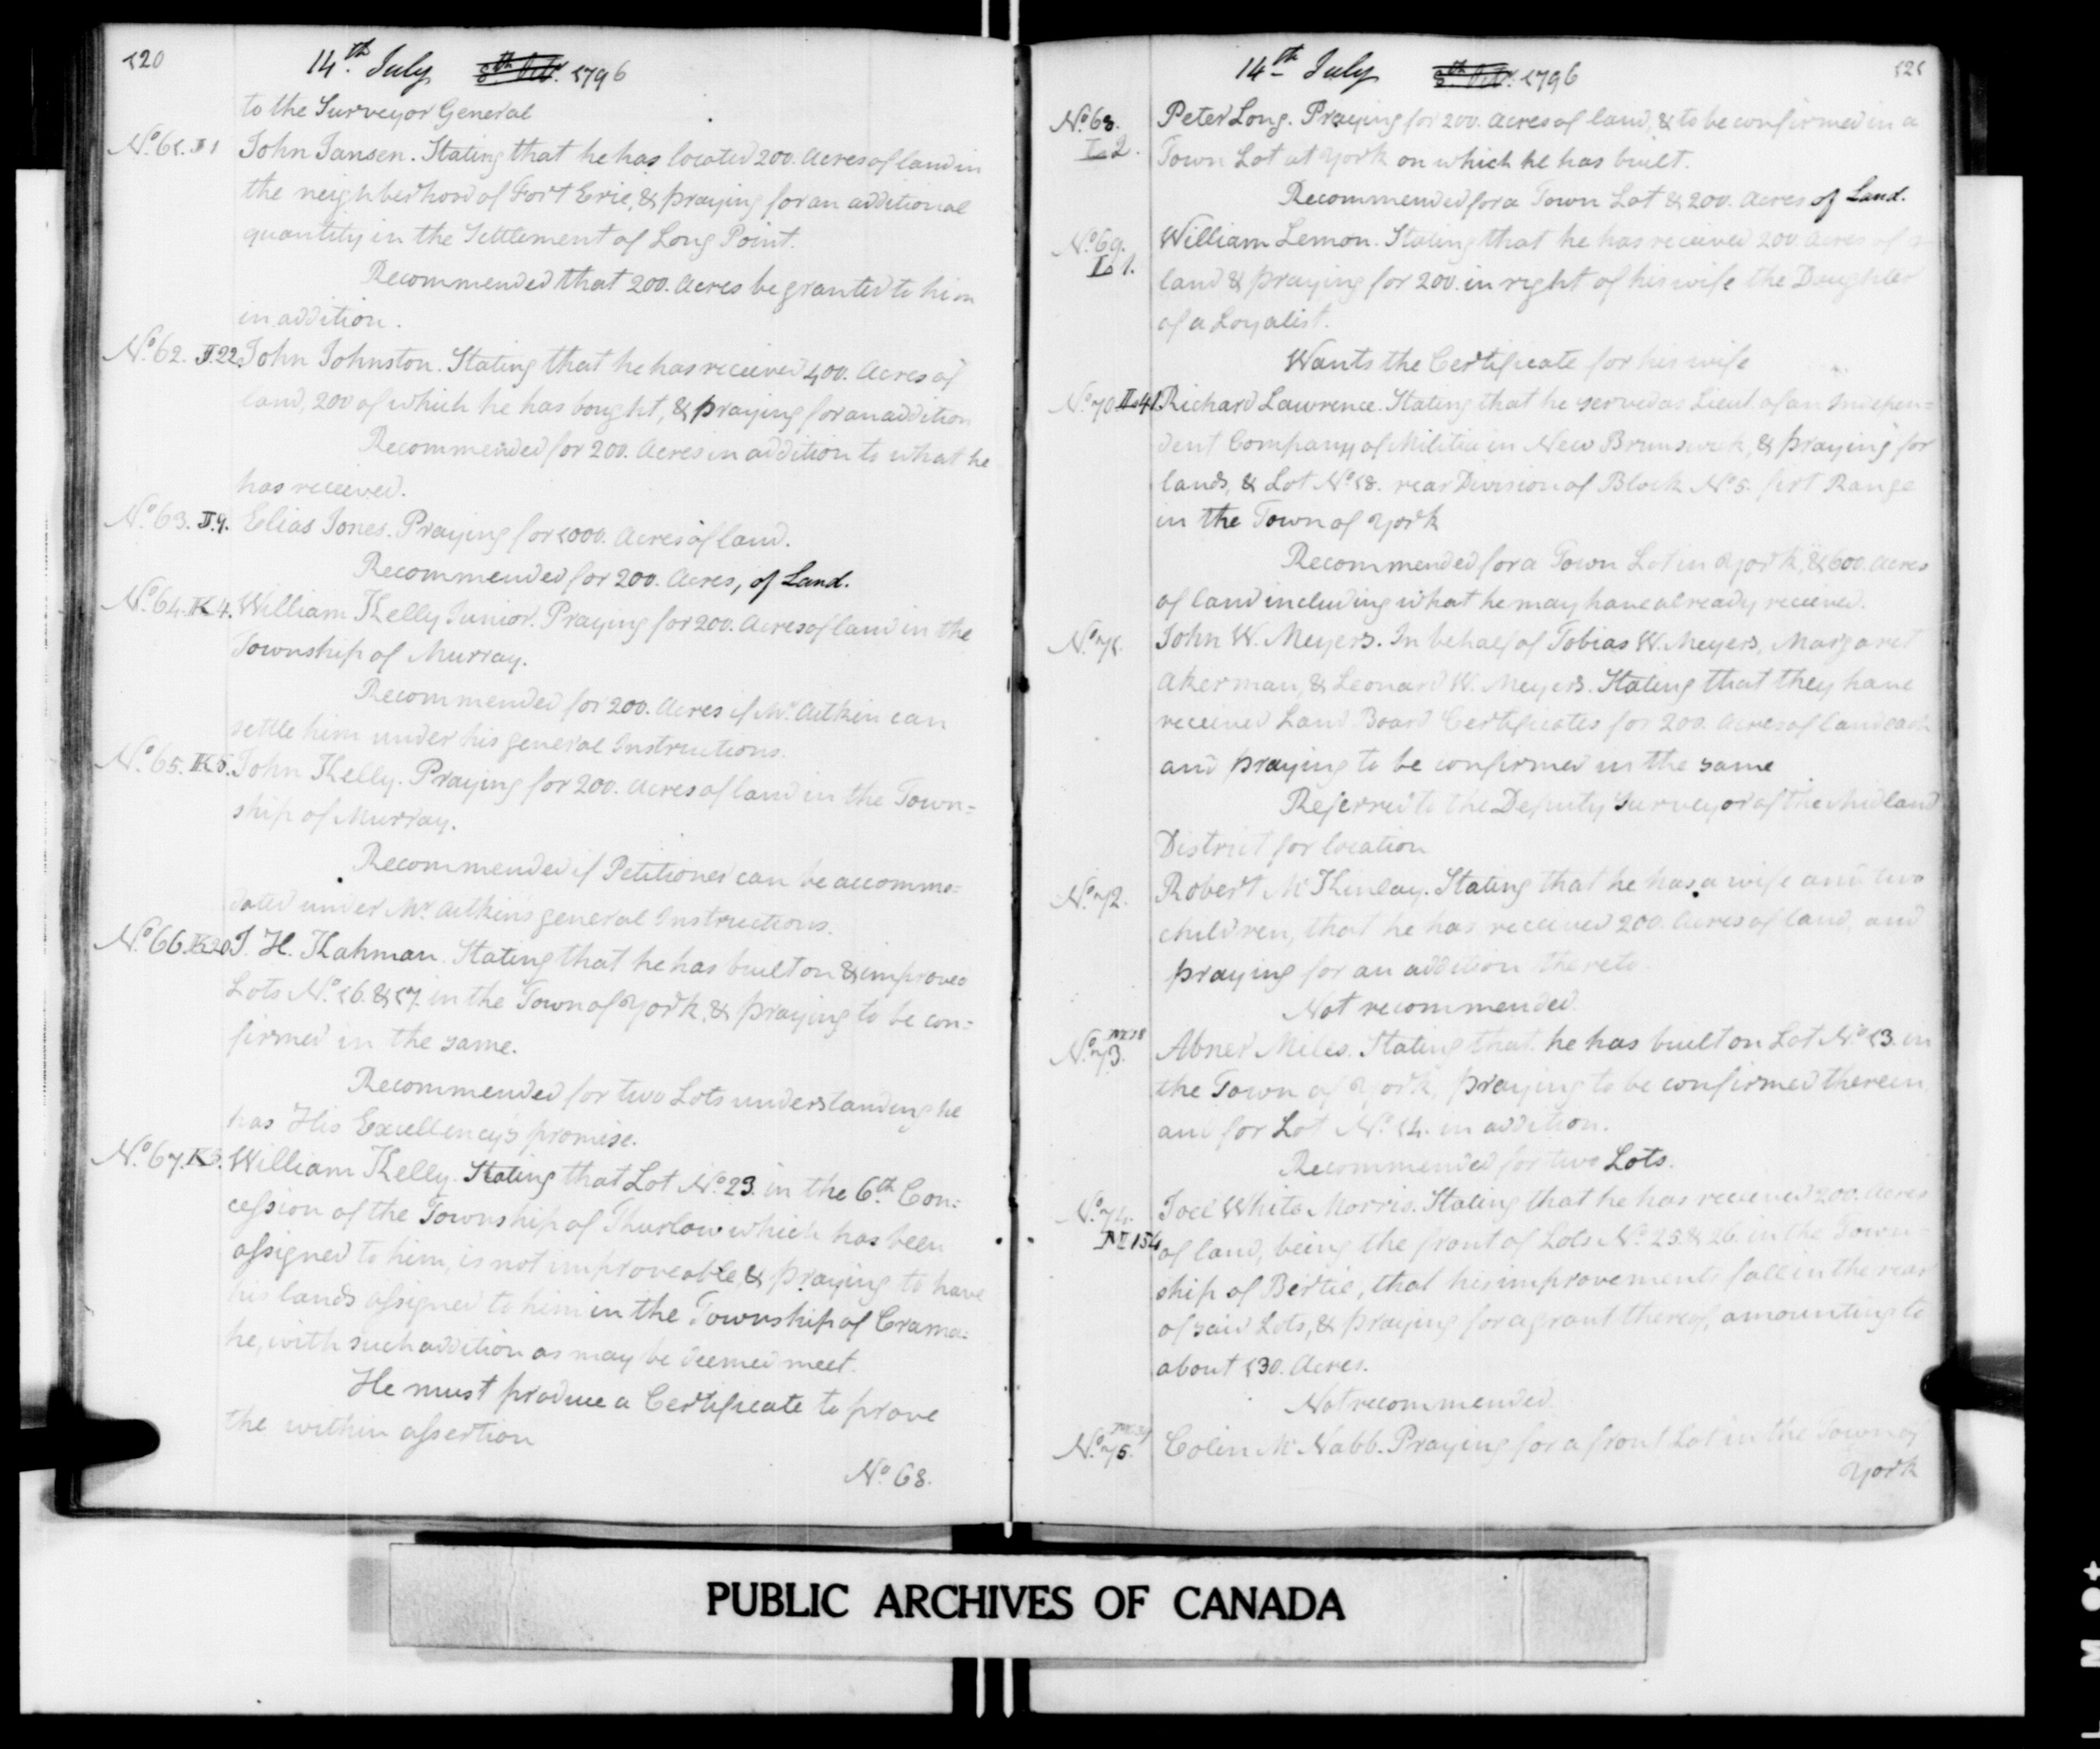 120
14th July ~~8th Octr.~~ 1796
to the Surveyor General
No. 61. J 1 John Jansen. Stating that he has located 200. Acres of land in
the neighberhood of Fort Erie, & praying for an additional
quantity in the Settlement of Long Point.
Recommended that 200. Acres be granted to him
in addition.
No. 62. J. 22. John Johnston. Stating that he has received 400. Acres of
land, 200 of which he has bought, & praying for an addition
Recommended for 200. Acres in addition to what he
has received.
No. 63. J. 9. Elias Jones. Praying for 1000. Acres of land.
Recommended for 200. Acres, of Land.
No. 64. K 4. William Kelly Junior. Praying for 200. Acres of land in the
Township of Murray.
Recommended for 200. Acres if Mr. Aitkin can
settle him under his general Instructions.
No. 65. K 5. John Kelly. Praying for 200. Acres of land in the Town=
ship of Murray.
Recommended if Petitioner can be accommo=
dated under Mr. Aitkin's general Instructions.
No. 66. K 20 J. H. Kahman. Stating that he has built on & improved
Lots No. 16. & 17. in the Town of York, & praying to be con=
firmed in the same.
Recommended for two Lots understanding he
has His Excellency's promise.
No. 67. K 3. William Kelly. Stating that Lot No. 23. in the 6th. Con=
cession of the Township of Thurlow which has been
assigned to him, is not improveable, & praying to have
his lands assigned to him in the Township of Crama=
he, with such addition as may be deemed meet.
He must produce a Certificate to prove
the within assertion
No. 68.
14th July ~~8th Octr.~~ 1796
121
No. 68. L 2. Peter Long. Praying for 200. Acres of land, & to be confirmed in a
Town Lot at York on which he has built.
Recommended for a Town Lot & 200. Acres of Land.
No. 69. L 1. William Lemon. Stating that he has received 200 Acres of
land & praying for 200. in right of his wife the Daughter
of a Loyalist.
Wants the Certificate for his wife
No. 70 L 41. Richard Lawrence. Stating that he served as Lieut. of an Indepen=
dent Company of Militia in New Brunswick, & praying for
lands, & Lot No. 18. rear Division of Block No. 5. first Range
in the Town of York
Recommended for a Town Lot in York, & 600. Acres
of land including what he may have already received.
No. 71. John W. Meyers. In behalf of Tobias W. Meyers, Margaret
Akerman, & Leonard W. Meyers. Stating that they have
received Land Board Certificates for 200. Acres of land each
and praying to be confirmed in the same
Referred to the Deputy Surveyor of the Midland
District for location
No. 72. Robert McKinlay. Stating that he has a wife and two
children, that he has received 200. Acres of land, and
praying for an addition thereto
Not recommended.
No. 73. M 18 Abner Miles. Stating that he has built on Lot No. 13. in
the Town of York, praying to be confirmed therein,
and for Lot No. 14. in addition.
Recommended for two Lots.
No. 74. M 154 Joel White Morris. Stating that he has received 200. Acres
of land, being the front of Lots No. 25. & 26. in the Town=
ship of Bertie, that his improvements fall in the rear
of said Lots, & praying for a grant thereof, amounting to
about 130. Acres.
Not recommended.
No. 75. Colin McNabb. Praying for a front Lot in the Town of
York
PUBLIC ARCHIVES OF CANADA